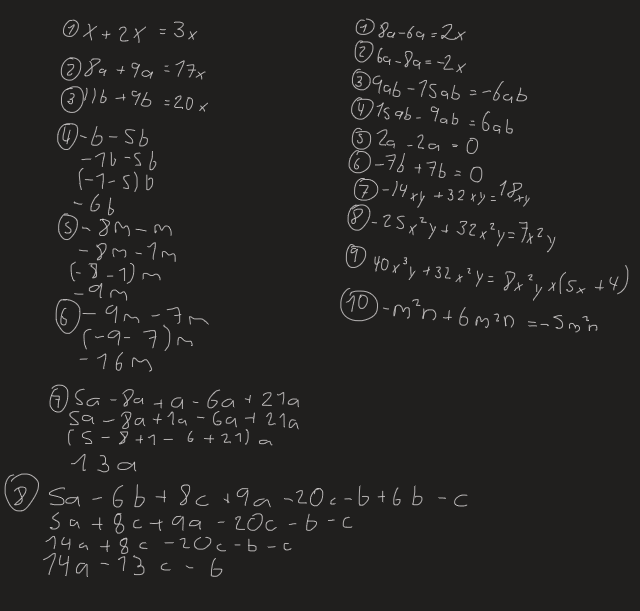 ① x + 2x = 3x
② 8a + 9a = 17x
③ 11b + 9b = 20x
④ -b - 5b
-1b - 5b
(-1 - 5) b
- 6b
⑤ - 8m - m
- 8m - 1m
(-8 - 1) m
- 9m
⑥ - 9m - 7m
(-9 - 7) m
- 16m
⑦ 5a - 8a + a - 6a + 21a
5a - 8a + 1a - 6a + 21a
(5 - 8 + 1 - 6 + 21) a
13a
⑧ 5a - 6b + 8c + 9a - 20c - b + 6b - c
5a + 8c + 9a - 20c - b - c
14a + 8c - 20c - b - c
14a - 13c - b
① 8a - 6a = 2x
② 6a - 8a = -2x
③ 9ab - 15ab = -6ab
④ 15ab - 9ab = 6ab
⑤ 2a - 2a = 0
⑥ -7b + 7b = 0
⑦ -14xy + 32xy = 18xy
⑧ -25x²y + 32x²y = 7x²y
⑨ 40x³y + 32x²y = 8x²y x (5x + 4)
⑩ -m²n + 6m²n = -5m²n